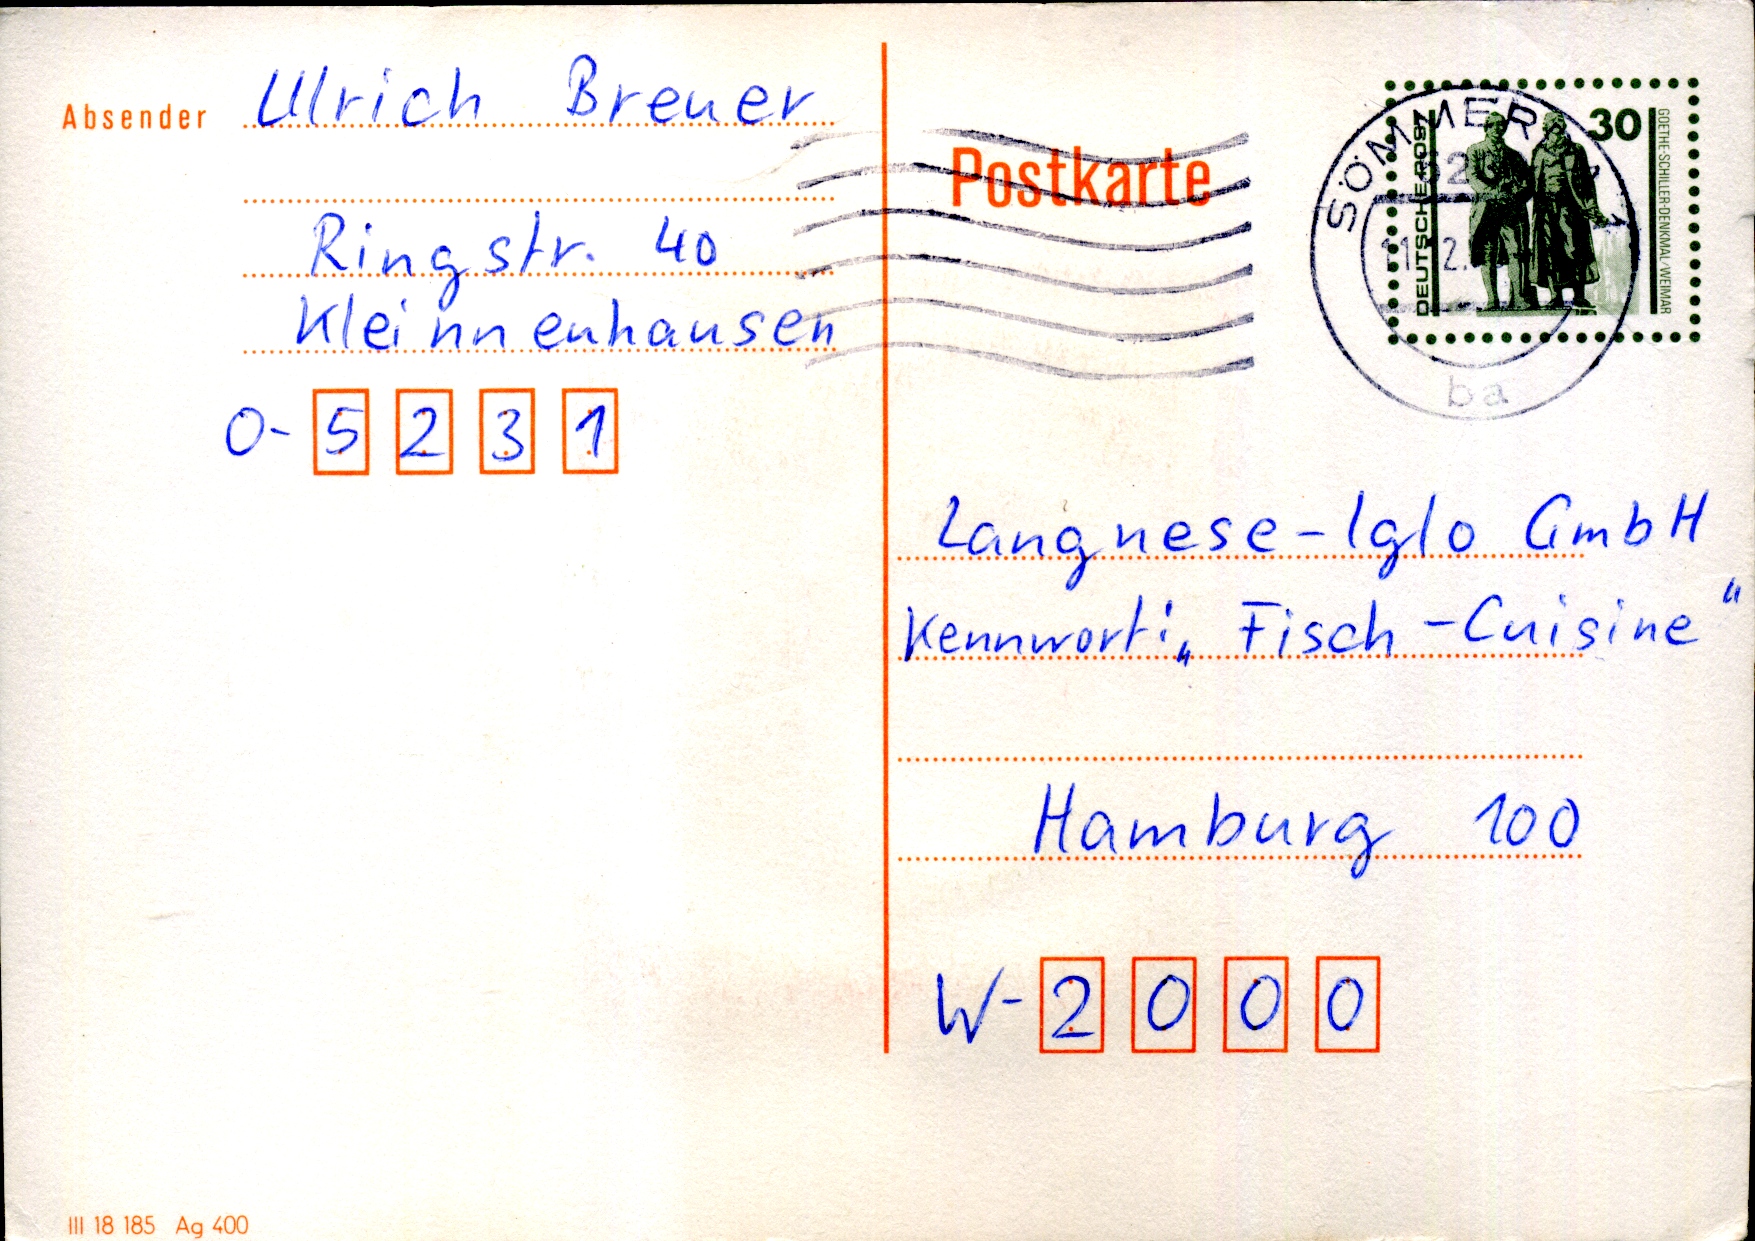 Absender Ulrich Breuer
Ringstr. 40
Kleinnenhausen
O- 5 2 3 1
Postkarte
SÖMMER
11. 2.
ba
DEUTSCHE POST
30
GOETHE-SCHILLER-DENKMAL/WEIMAR
Langnese-Iglo GmbH
Kennwort: „Fisch-Cuisine“
Hamburg 100
W- 2 0 0 0
III 18 185 Ag 400